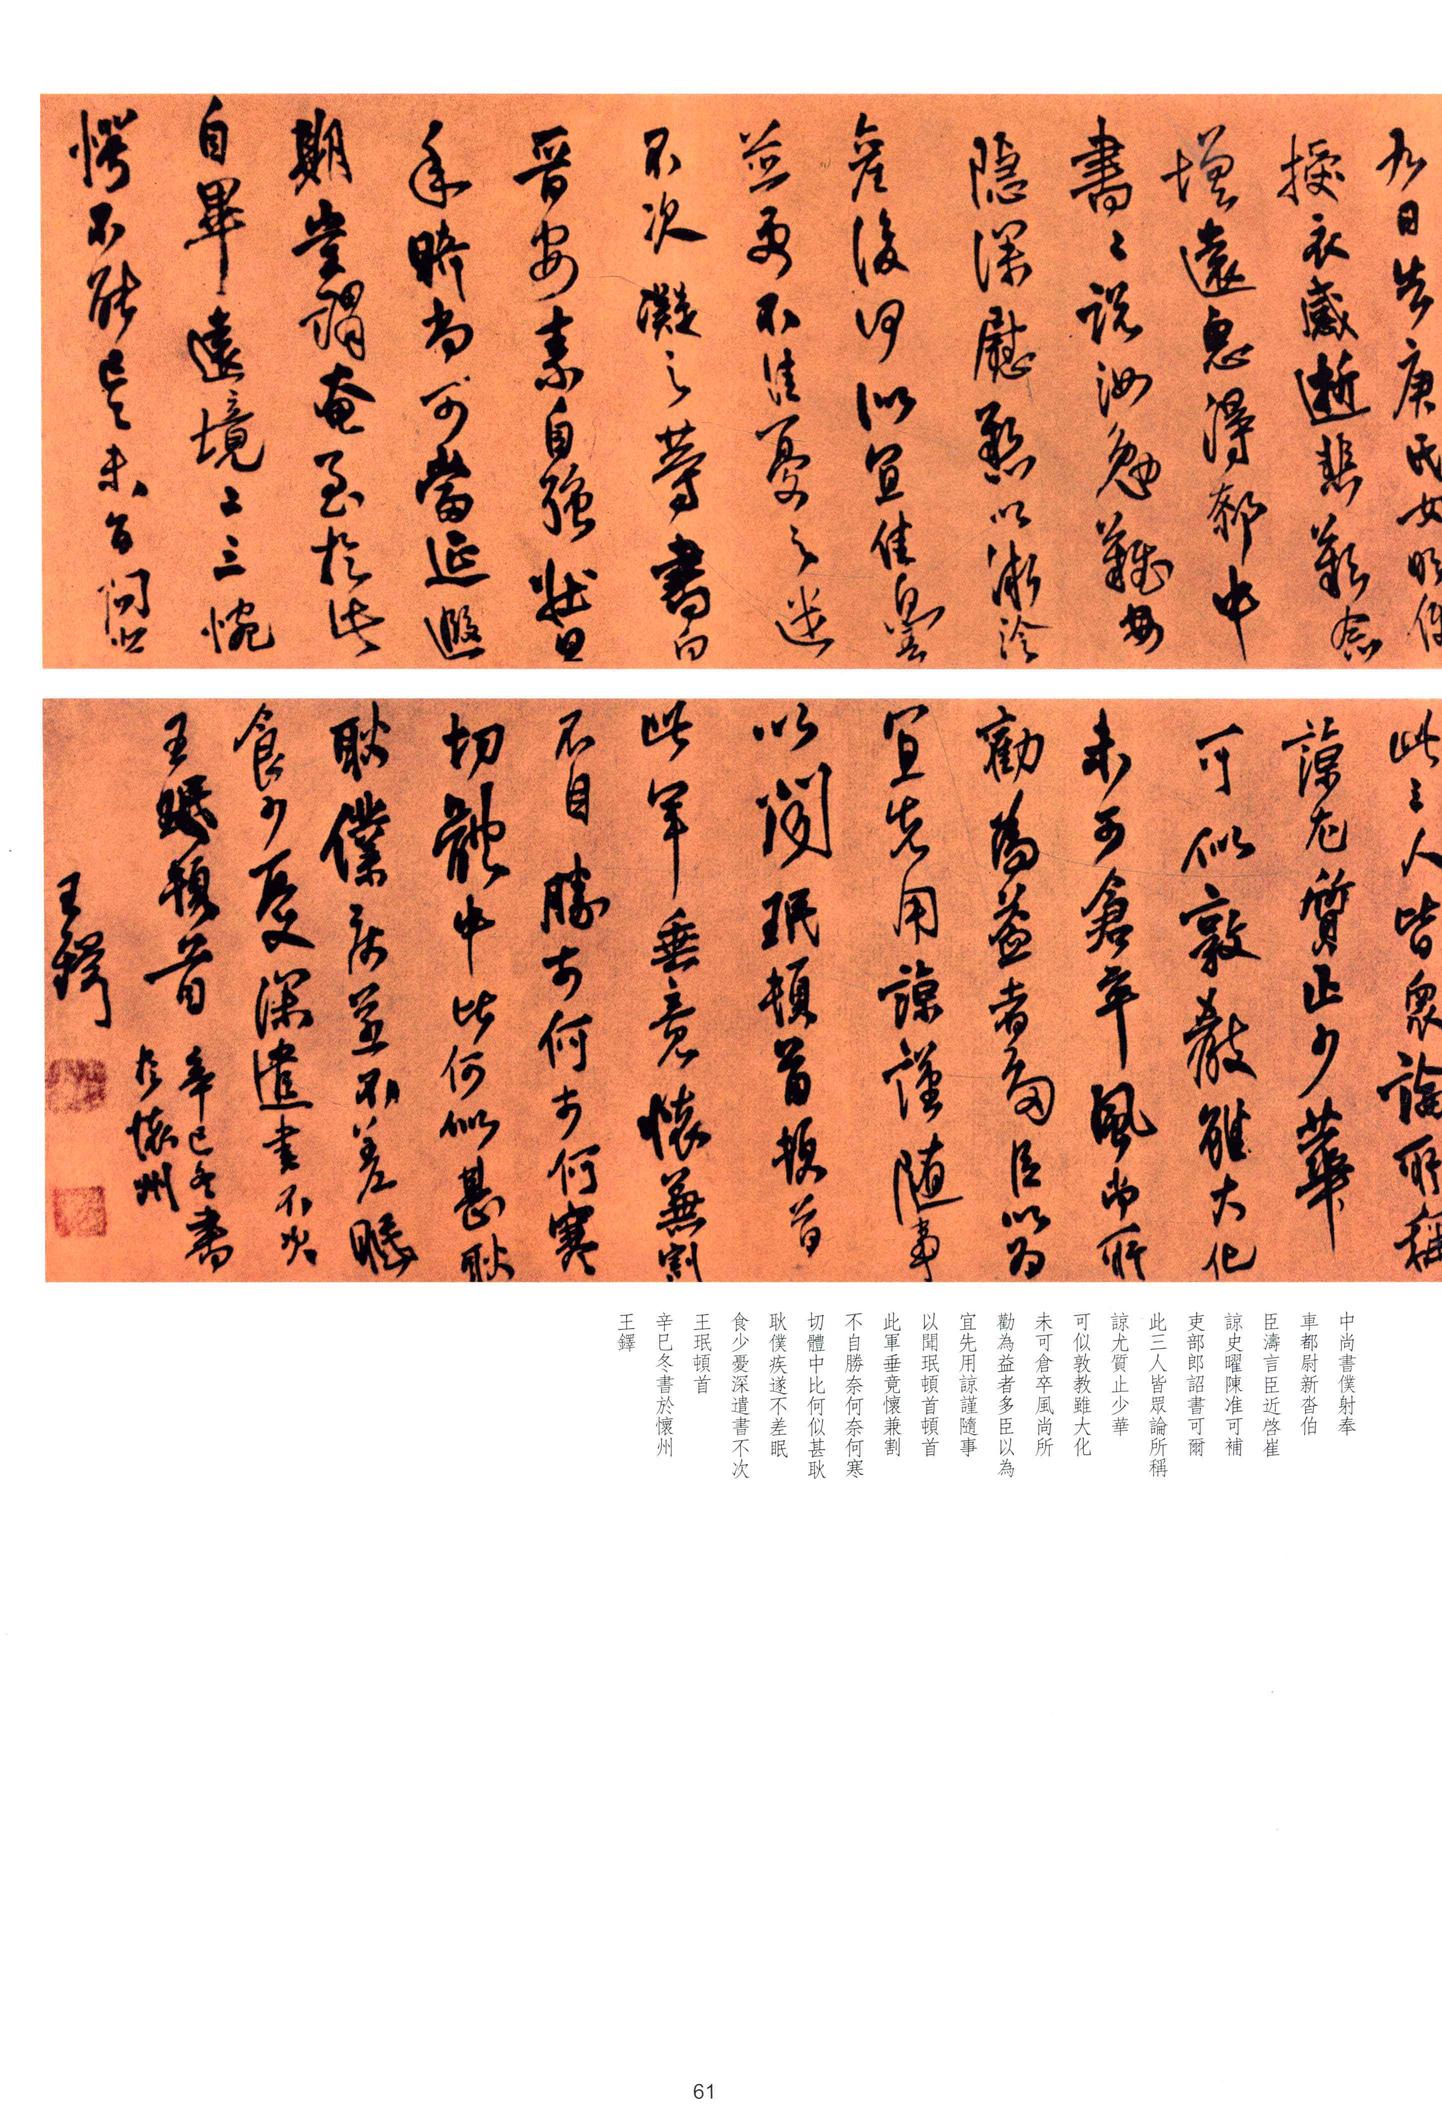 九日告庚氏女明便
授衣感逝悲歎念
增遠思得郗中
書書說汝勉難安
隱深慰懸以漸冷
產後何似宜佳
並更不佳憂之
不次凝之等書白
晉安素自強壯
年時尚可當延遐
期豈謂奄至於此
自畢遠境二三惋
愕不能已已未百
此三人皆眾論所稱
諒尤質止少華
可似敦教雖大化
未可倉卒風尚所
勸為益者多臣以為
宜先用諒謹隨事
以聞珉頓首頓首
此軍垂竟懷兼割
不自勝奈何奈何寒
切體中比何似甚耿
耿僕疾遂不差眠
食少憂深遣書不次
王珉頓首
辛巳冬書
於懷州
王鐸
中尚書僕射奉
車都尉新沓伯
臣濤言臣近啓崔
諒史曜陳准可補
吏部郎詔書可爾
此三人皆眾論所稱
諒尤質止少華
可似敦教雖大化
未可倉卒風尚所
勸為益者多臣以為
宜先用諒謹隨事
以聞珉頓首頓首
此軍垂竟懷兼割
不自勝奈何奈何寒
切體中比何似甚耿
耿僕疾遂不差眠
食少憂深遣書不次
王珉頓首
辛巳冬書於懷州
王鐸
61